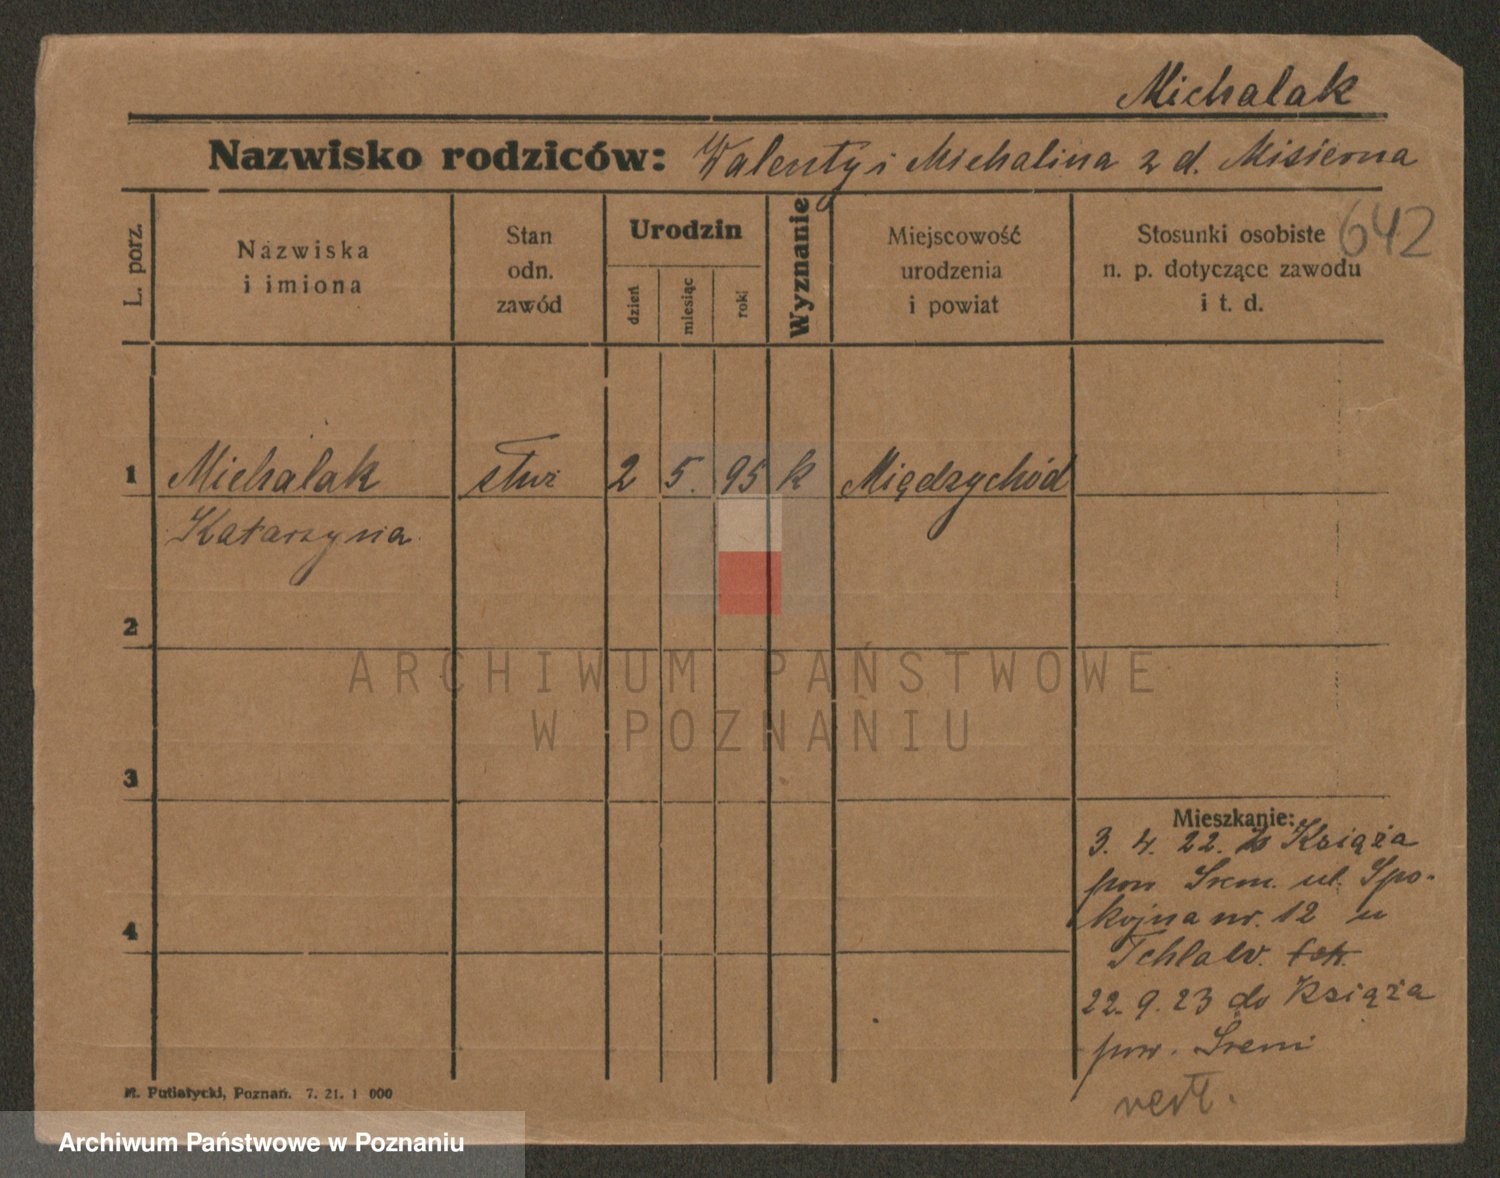 Michalak
Nazwisko rodziców: Walenty i Michalina z d. Misierna
642
L. porz.
Nazwiska
i imiona
Stan
odn.
zawód
Urodzin
dzień
miesiąc
rok
Wyznanie
Miejscowość
urodzenia
i powiat
Stosunki osobiste
n. p. dotyczące zawodu
i t. d.
1 Michalak służ 2 5. 95 k Międzychód
Katarzyna
2
ARCHIWUM PAŃSTWOWE
W POZNANIU
3
Mieszkanie:
3. 4. 22. z Książa
pow Śrem. ul. Spo-
4
kojna nr. 12 u
22. 9. 23 do Książa
pow. Śrem
M. Putiatycki, Poznań. 7. 21. 1 000
Archiwum Państwowe w Poznaniu